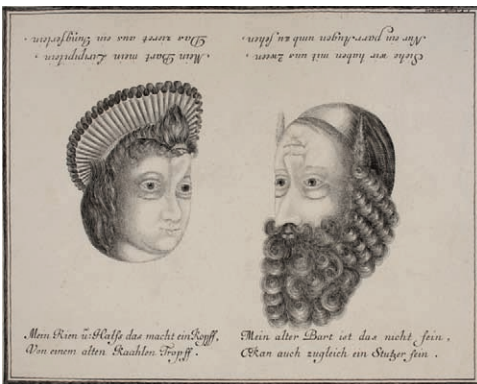 Siehe wir haben mit uns Zween,
Nur ein paar Augen umb zu sehen.
Mein Bart mein
Das zieret aus ein Jungferlein.
Mein Kien ü: Halss das macht ein Kopff,
Von einem alten Kaahlen Tropff.
Mein alter Bart ist das nicht fein,
Kan auch zugleich ein Stutzer sein.